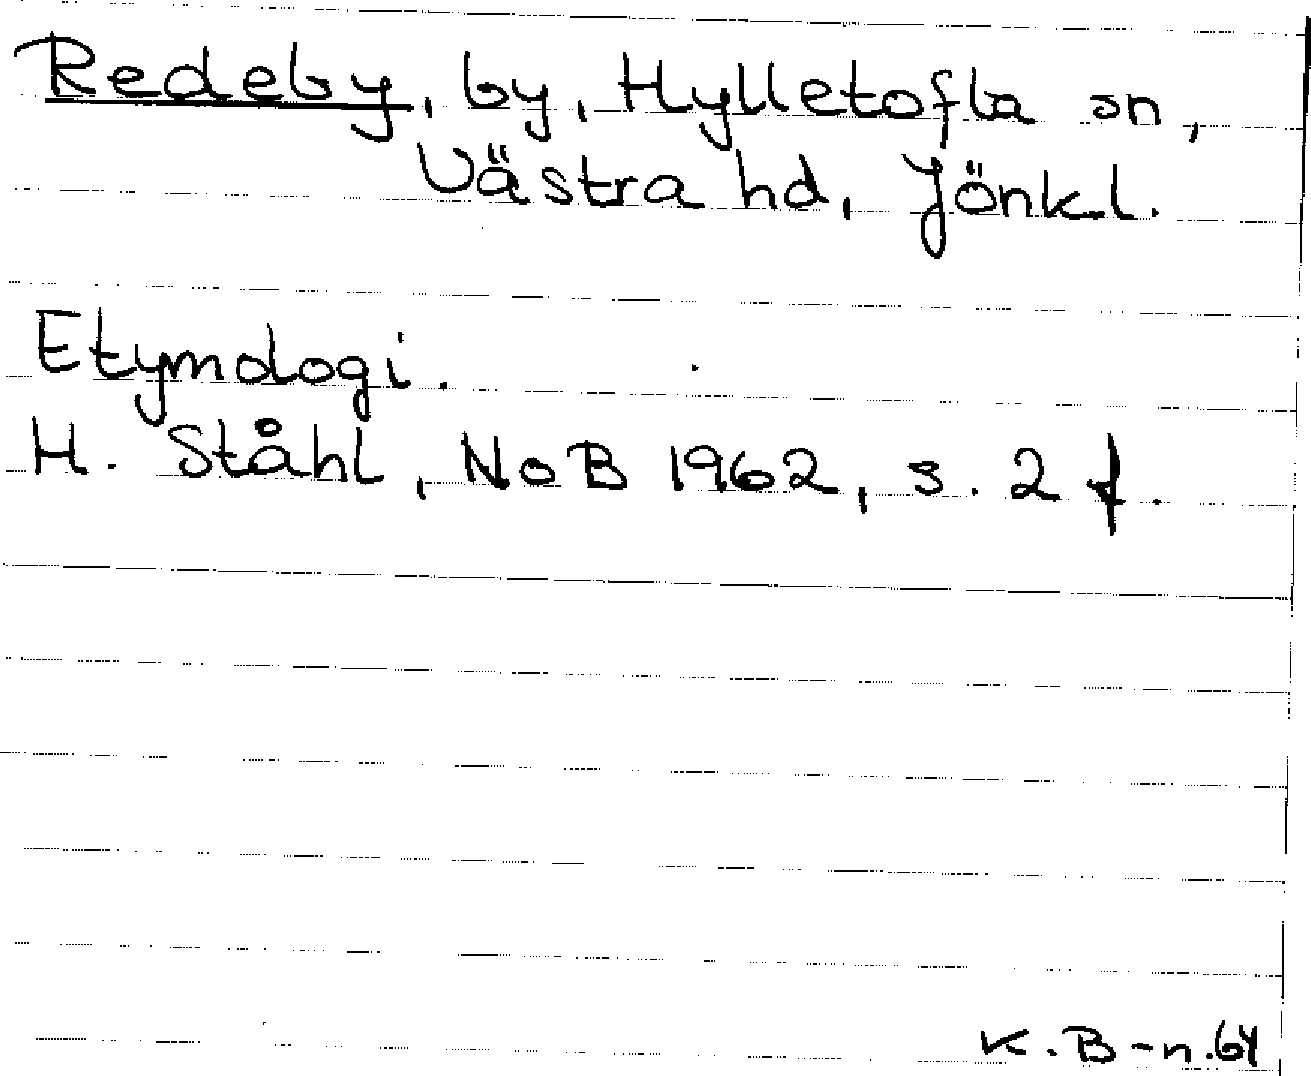 Redeby, by, Hylletofla sn,
Västra hd, Jönk.l.
Etymologi.
H. Ståhl, NoB 1962, s. 2 f.
K.B-n.64